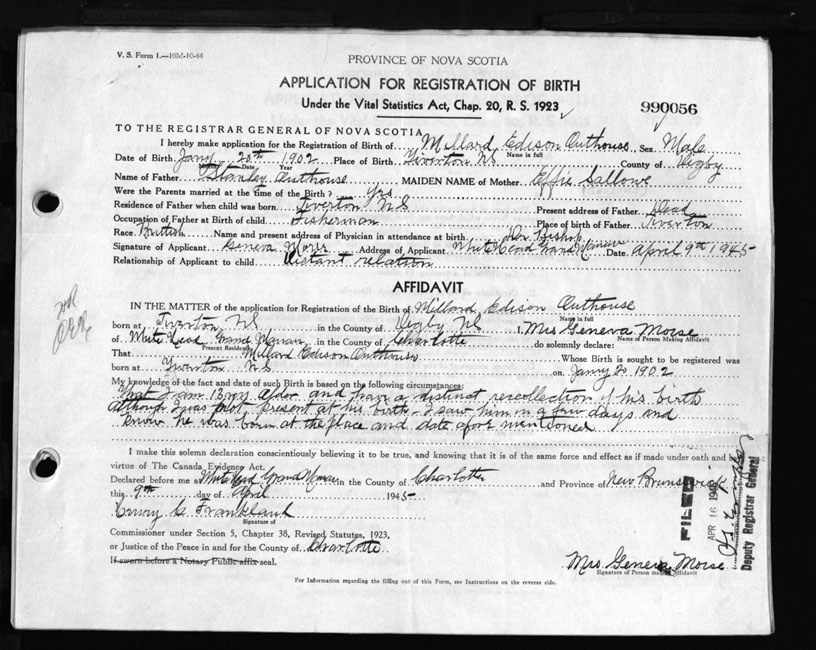 V. S. Form 1.—10M-10-44
PROVINCE OF NOVA SCOTIA
APPLICATION FOR REGISTRATION OF BIRTH
Under the Vital Statistics Act, Chap. 20, R. S. 1923
990056
TO THE REGISTRAR GENERAL OF NOVA SCOTIA
I hereby make application for the Registration of Birth of Millard Edison Outhouse Sex Male
Name in full
Date of Birth Jany 20th 1902 Place of Birth Tiverton NS County of Digby
Month Date Year
Name of Father Stanley Outhouse MAIDEN NAME of Mother Effie Sallows
Were the Parents married at the time of the Birth? Yes
Residence of Father when child was born Tiverton NS Present address of Father Dead
Occupation of Father at Birth of child Fisherman Place of birth of Father Tiverton
Race British Name and present address of Physician in attendance at birth Dr. Bishop
Signature of Applicant Geneva Morse Address of Applicant White Head Grand Manan Date April 9th 1945
Relationship of Applicant to child Distant relation
AFFIDAVIT
IN THE MATTER of the application for Registration of the Birth of Millard Edison Outhouse
Name in full
born at Tiverton NS in the County of Digby NS I, Mrs Geneva Morse
Name of Person Making Affidavit
of White Head Grand Manan in the County of Charlotte do solemnly declare:
Present Residence
That Millard Edison Outhouse Whose Birth is sought to be registered was
born at Tiverton NS on Jany 20 1902
My knowledge of the fact and date of such Birth is based on the following circumstances:
That I am 13 yrs older and have a distinct recollection of his birth
Although I was not present at his birth - I saw him in a few days and
know he was born at the place and date afore mentioned
I make this solemn declaration conscientiously believing it to be true, and knowing that it is of the same force and effect as if made under oath and by
virtue of The Canada Evidence Act.
Declared before me at White Head Grand Manan in the County of Charlotte and Province of New Brunswick
this 9th day of April 1945
Frankland
Signature of
Commissioner under Section 5, Chapter 38, Revised Statutes, 1923,
or Justice of the Peace in and for the County of Charlotte
If sworn before a Notary Public affix seal.
Mrs. Geneva Morse
Signature of Person making Affidavit
For Information regarding the filling out of this Form, see Instructions on the reverse side.
FILED
APR 16
Deputy Registrar General